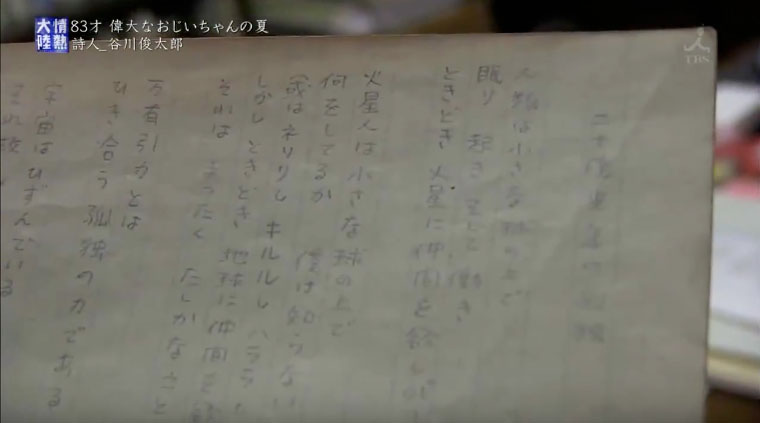 情熱大陸
83才 偉大なおじいちゃんの夏
詩人_谷川俊太郎
TBS
二十億光年の孤独
人類は小さな球の上で
眠り 起き そして働き
ときどき火星に仲間を欲しが
火星人は小さな球の上で
何をしてるか 僕は知らない
(或はネリリし キルルし ハララ
しかしときどき 地球に仲間を欲
それは まったく たしかなこと
万有引力とは
ひき合う孤独の力である
宇宙はひずんでいる
それ故